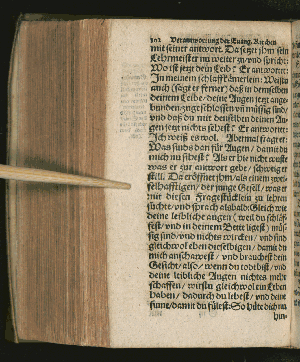 202 Verantwortung der Euang. Kirchen
mit seiner antwort. Da setzt jhm sein
Lehrmeister nu weiter zu/und spricht:
Wo ist jetzt dein Leib? Er antwortet:
In meinem schlaffkämerlein: Weistu
auch (sagt er ferner) daß in demselben
deinem Leibe/deine Augen jetzt zuge-
bunden/zugeschlossen uñ müssig sind/
und daß du mit denselben deinen Au-
gen jetzt nichts sehest? Er antwortet:
Ich weiß es wol. Abermal fragt er:
Was sinds dan für Augen/damit du
mich nu sihest? Als er hie nicht wuste
was er zur antwort gebe/schweig er
still. Da eröffnet jhm/als einem zwei-
felhafftigen/der junge Gesell/was er
mit diesen Fragestücklein zu lehren
suchte/und sprach alsbald: Gleich wie
deine leibliche augen (weil du schläf-
fest/und in deinem Bette ligest) müs-
sig sind/und nichts wircken/und sind
gleichwol eben dieselbigen/damit du
mich anschawest/und brauchst dein
Gesicht/also/wenn du todt bist/und
deine leibliche Augen nichtes mehr
schaffen/wirstu gleichwol ein Leben
haben/dadurch du lebest/und deine
sinne/damit du fülest. So hüte dich nu
hin-